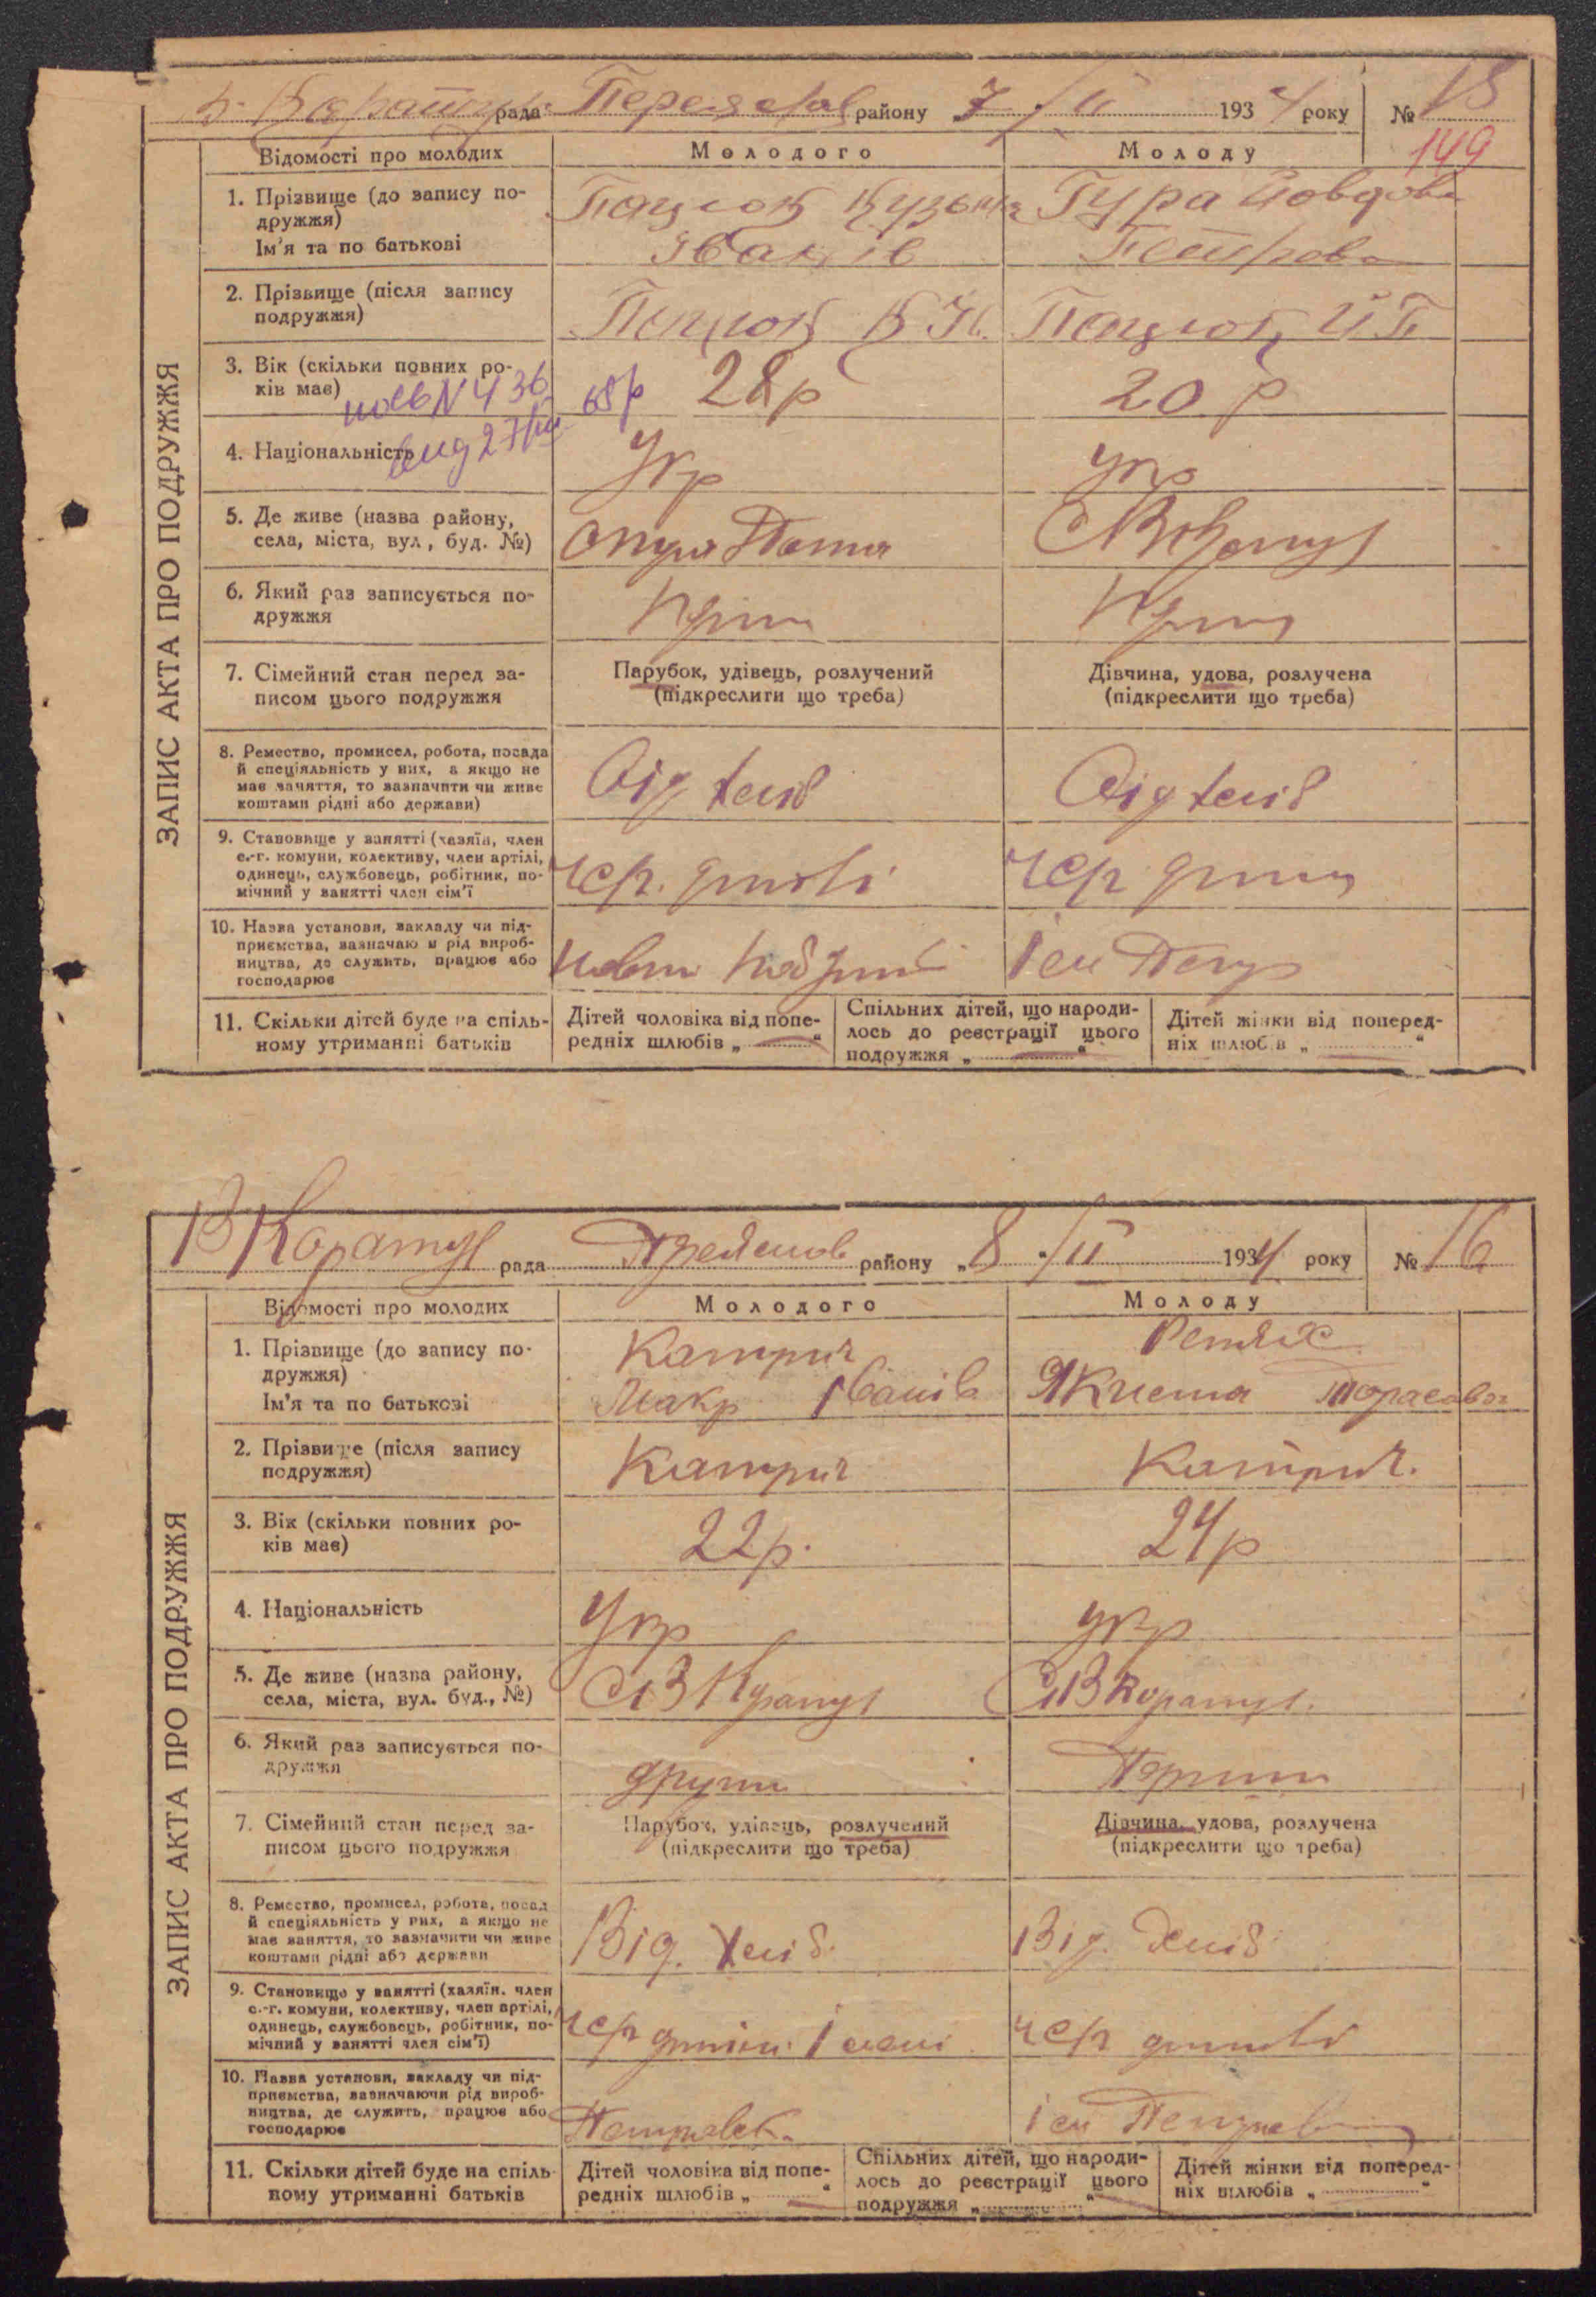 В. Каратул рада Переяслав району „7/II 1934 року № 15
149
ЗАПИС АКТА ПРО ПОДРУЖЖЯ
Відомості про молодих
Молодого
Молоду
1. Прізвище (до запису по-
дружжя)
Ім'я та по батькові
Пацюк Кузьма
Іванів
Гура Йовдоха
Петрова
2. Прізвище (після запису
подружжя)
Пацюк К І.
Пацюк Й П
3. Вік (скільки повних ро-
ків має)
28р
20 р
68р
4. Національність
Укр
укр
5. Де живе (назва району,
села, міста, вул., буд. №)
С В Каратул
6. Який раз записується по-
дружжя
7. Сімейний стан перед за-
писом цього подружжя
Парубок, удівець, розлучений
(підкреслити що треба)
Дівчина, удова, розлучена
(підкреслити що треба)
8. Ремество, промисел, робота, посада
й спеціяльність у них, а якщо не
має заняття, то зазначити чи живе
коштами рідні або держави)
9. Становище у занятті (хазяїн, член
с.-г. комуни, колективу, член артілі,
одинець, службовець, робітник, по-
мічний у занятті член сім'ї
чер.
чер
10. Назва установи, закладу чи під-
приємства, зазначаю и рід вироб-
ництва, де служить, працює або
господарює
11. Скільки дітей буде на спіль-
ному утриманні батьків
Дітей чоловіка від попе-
редніх шлюбів „ “
Спільних дітей, що народи-
лось до реєстрації цього
подружжя „ “
Дітей жінки від поперед-
ніх шлюбів „ “
В Каратул рада району „8 /II 1934 року № 16
ЗАПИС АКТА ПРО ПОДРУЖЖЯ
Відомості про молодих
Молодого
Молоду
1. Прізвище (до запису по-
дружжя)
Ім'я та по батькові
Катрич
Макар Іванів
Ретях
Якилина Тарасова
2. Прізвище (після запису
подружжя)
Катрич
Катрич.
3. Вік (скільки повних ро-
ків має)
22р.
24р
4. Національність
Укр
укр
5. Де живе (назва району,
села, міста, вул. буд., №)
С В Каратул
С В Каратул.
6. Який раз записується по-
дружжя
други
Перши
7. Сімейний стан перед за-
писом цього подружжя
Парубок, удівець, розлучений
(підкреслити що треба)
Дівчина, удова, розлучена
(підкреслити що треба)
8. Ремество, промисел, робота, посад
й спеціяльність у них, а якщо не
має заняття, то зазначити чи живе
коштами рідні або держави
Від. хліб.
Від. хліб
9. Становище у занятті (хазяїн. член
с.-г. комуни, колективу, член артілі,
одинець, службовець, робітник, по-
мічний у занятті член сім'ї)
чер
чер
10. Назва установи, закладу чи під-
приємства, зазначаючи рід вироб-
ництва, де служить, працює або
господарює
11. Скільки дітей буде на спіль-
ному утриманні батьків
Дітей чоловіка від попе-
редніх шлюбів „ “
Спільних дітей, що народи-
лось до реєстрації цього
подружжя „ “
Дітей жінки від поперед-
ніх шлюбів „ “